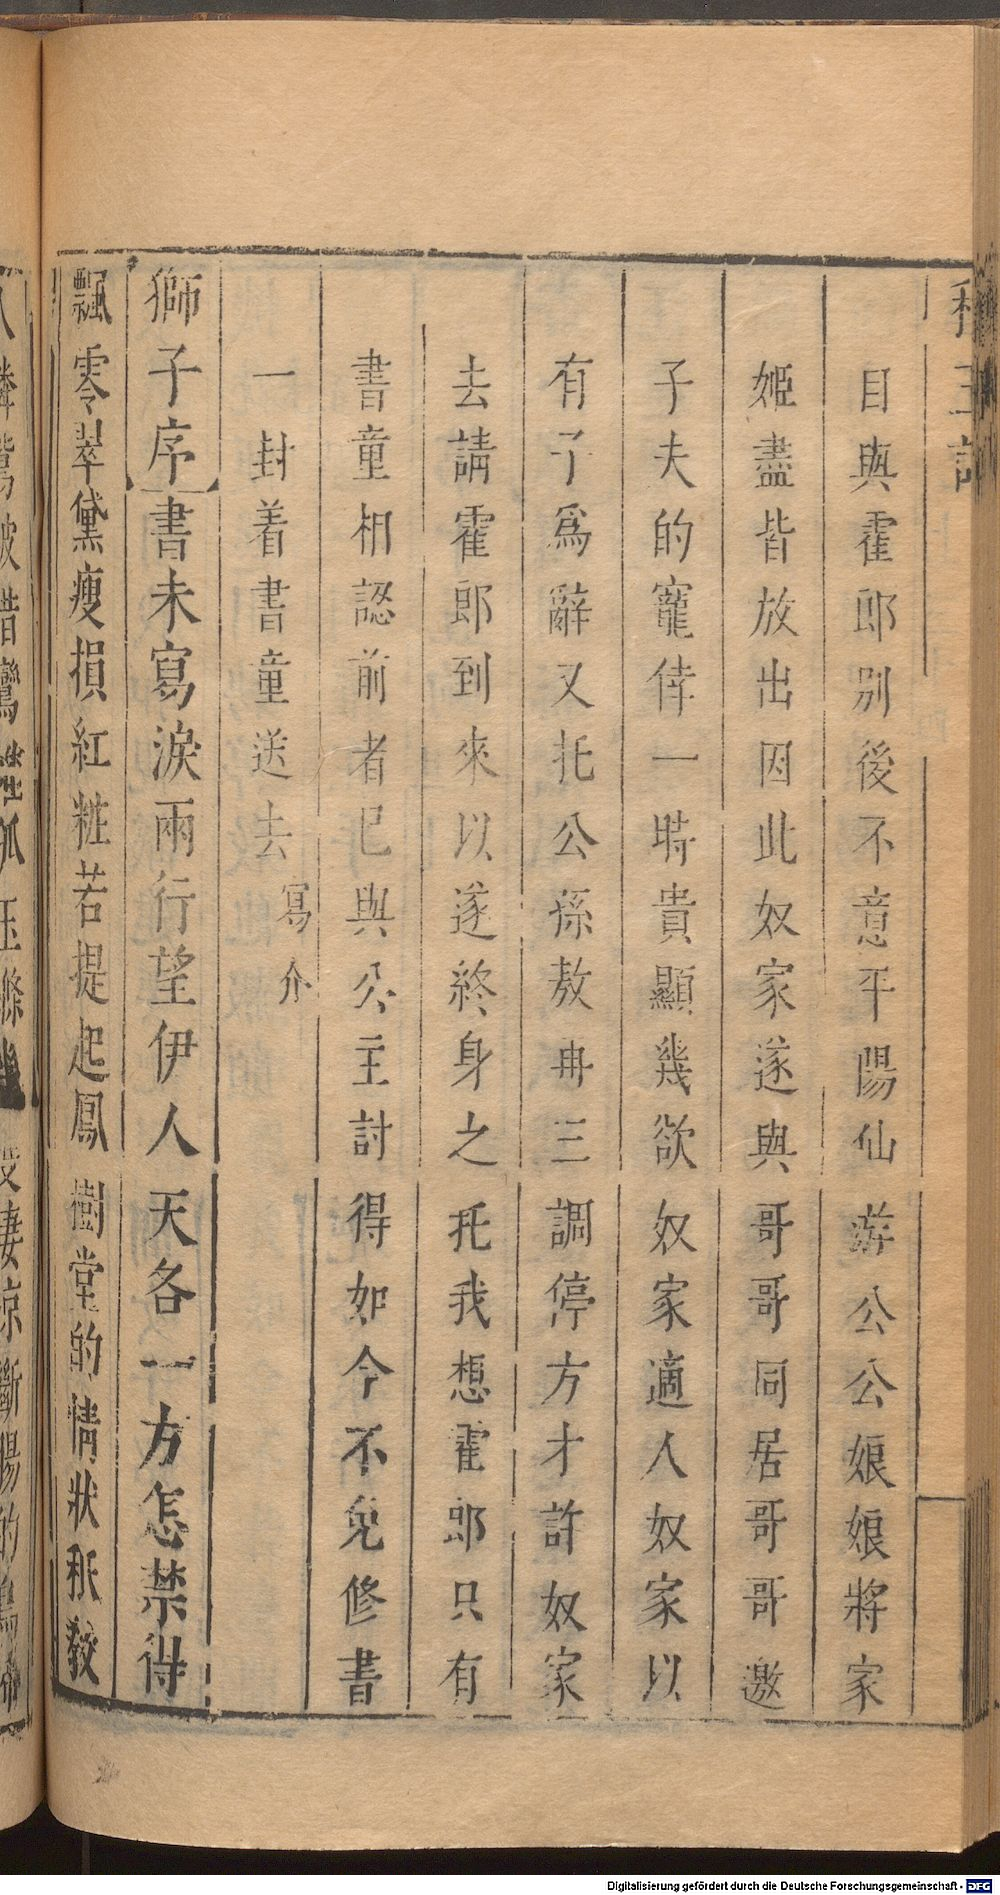 目與霍郎別後不意平陽仙游公公娘娘將家
姬盡皆放出因此奴家遂與哥哥同居哥哥邀
子夫的寵倖一時貴顯幾欲奴家適人奴家以
有子爲辭又托公孫敖再三調停方才許奴家
去請霍郎到來以遂終身之托我想霍郎只有
書童相認前者已與公主討得如今不免修書
一封着書童送去寫介
獅子序書未寫淚兩行望伊人天各一方怎禁得
飄零翠黛瘦損紅粧若提起鳳樹堂的情狀秖教
Digitalisierung gefördert durch die Deutsche Forschungsgemeinschaft - DFG